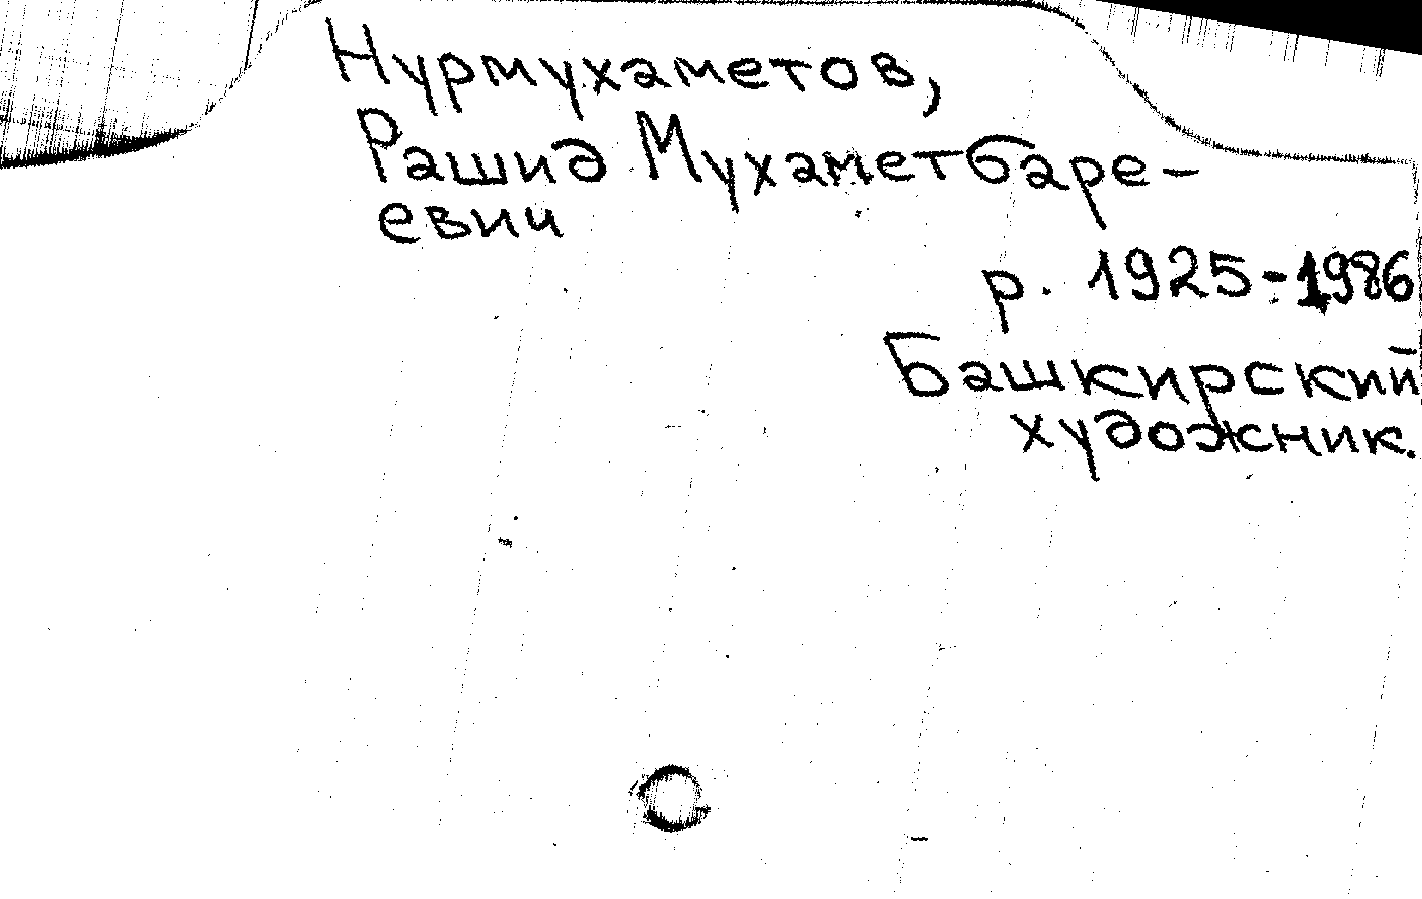 Нурмухаметов,
Рашид Мухаметбаре-
евич
р. 1925-1986
Башкирский
художник.